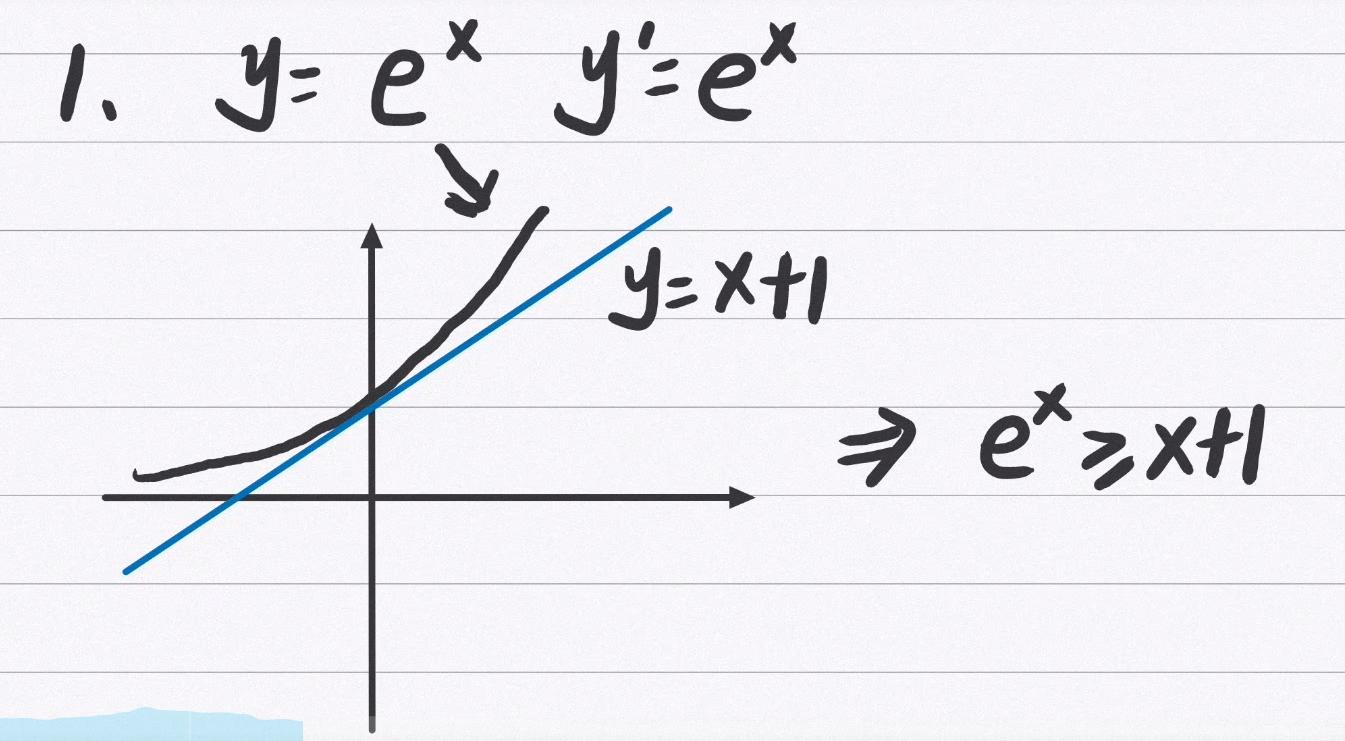 1. y = eˣ y' = eˣ
y = x+1
⇒ eˣ ≥ x+1